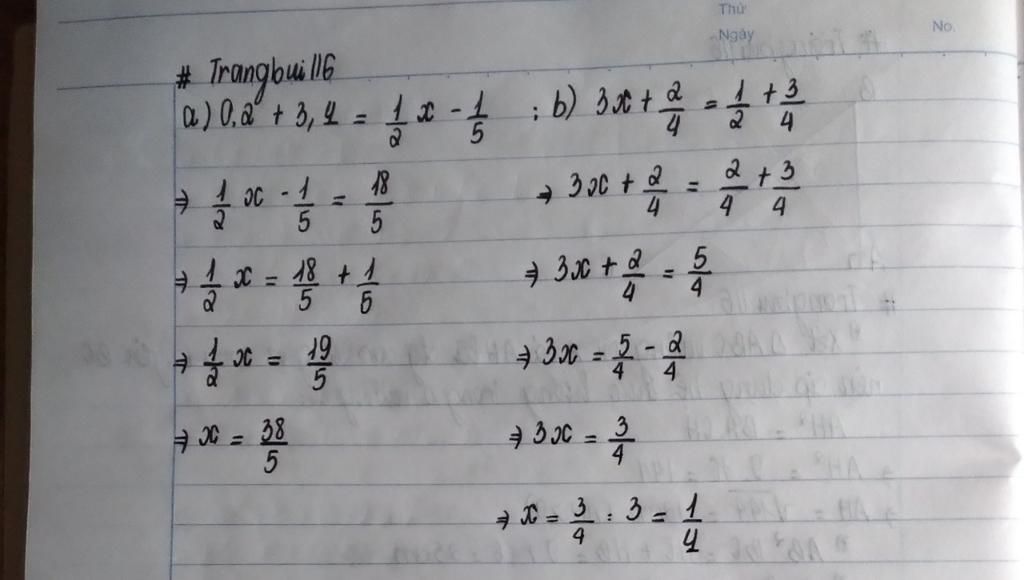 Thứ
Ngày
No.
# Trangbui116
a) 0,2 + 3,4 = 1/2 x - 1/5 ; b) 3x + 2/4 = 1/2 + 3/4
⇒ 1/2 x - 1/5 = 18/5 → 3x + 2/4 = 2/4 + 3/4
⇒ 1/2 x = 18/5 + 1/5 ⇒ 3x + 2/4 = 5/4
⇒ 1/2 x = 19/5 ⇒ 3x = 5/4 - 2/4
⇒ x = 38/5 ⇒ 3x = 3/4
⇒ x = 3/4 : 3 = 1/4